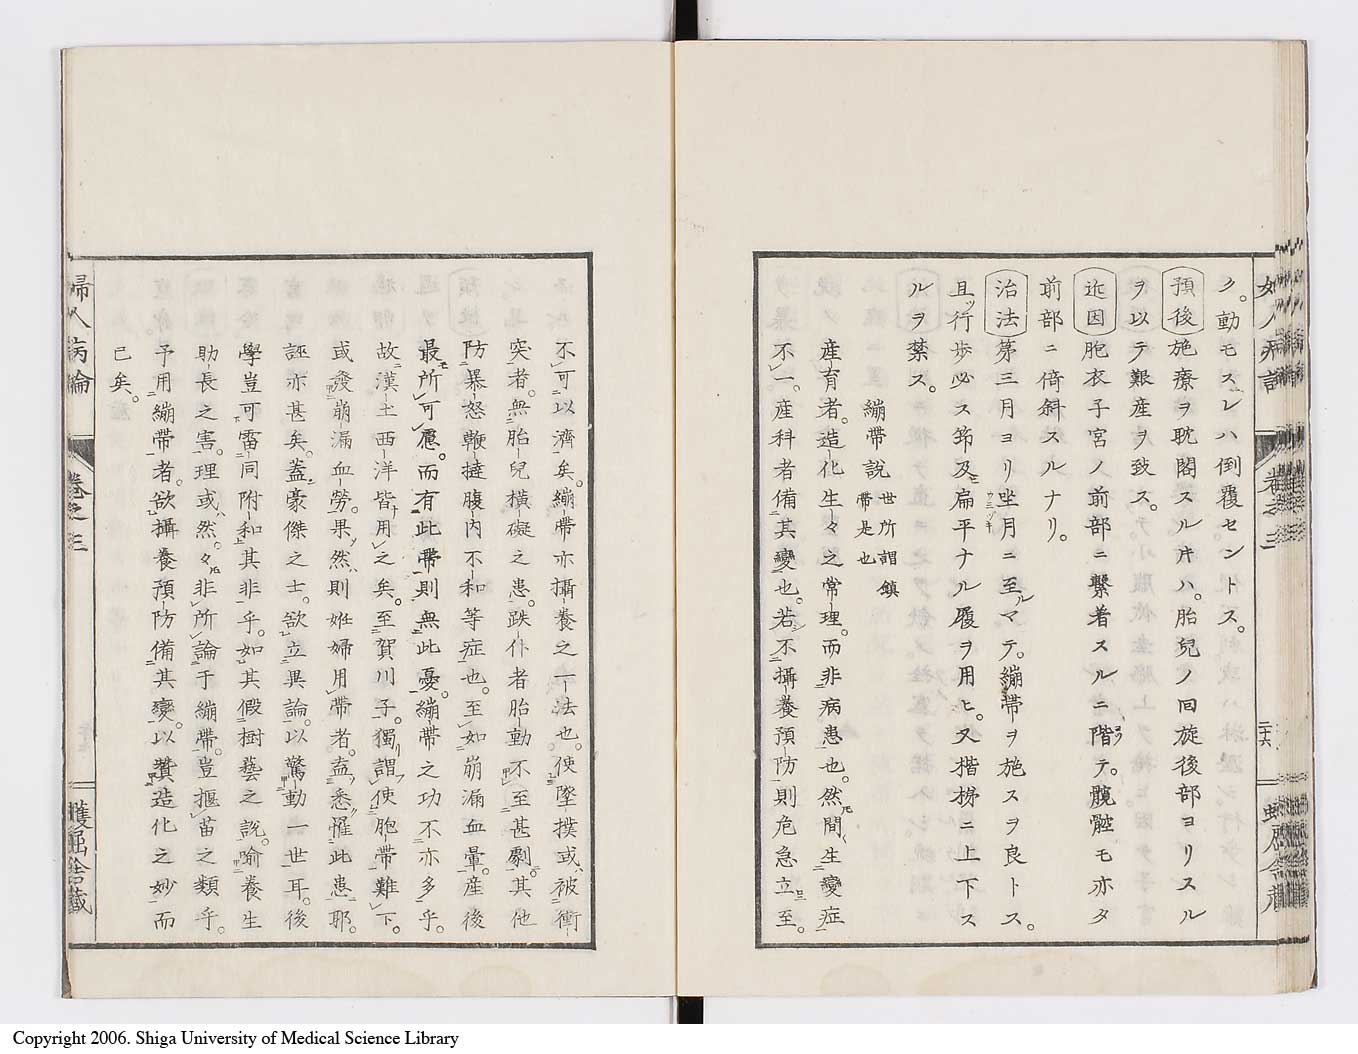 ク。動モスレハ倒覆セントス。
預後 施療ヲ耽閣スル𪜈ハ。胎兒ノ回旋後部ヨリスル
ヲ以テ艱産ヲ致ス。
近因 胞衣子宮ノ前部ニ繋着スルニ階テ。髖髀モ亦タ
前部ニ倚斜スルナリ。
治法 第三月ヨリ坐月ニ至ルマテ。繃帶ヲ施スヲ良トス。
且ッ行歩必ス笻及ニ扁平ナル履ヲ用ヒ。又楷梯ニ上下ス
ルヲ禁ス。
繃帶說 世所謂鎮帶是也
産育者。造化生々之常理。而非病患也。然間生變症
不一。産科者備其變也。若不攝養預防則危急立至。
不可以濟矣。繃帶亦攝養之一法也。使墜撲或被衝
突者。無胎兒橫礙之患。跌仆者胎動不至甚劇。其他
防暴怒鞭撻腹內不和等症也。至如崩漏血暈。産後
最所可慮。而有此帶則無此憂。繃帶之功不亦多乎。
故漢土西洋皆用之矣。至賀川子。獨謂使胞帶難下。
或發崩漏血勞。果然則姙婦用帶者。盍悉罹此患耶。
誣亦甚矣。蓋豪傑之士。欲立異論。以驚動一世耳。後
學豈可雷同附和其非乎。如其假樹藝之說。喻養生
助長之害。理或然。々非所論于繃帶。豈揠苗之類乎。
予用繃帶者。欲攝養預防備其變。以贊造化之妙而
已矣。
婦人病論
卷之三